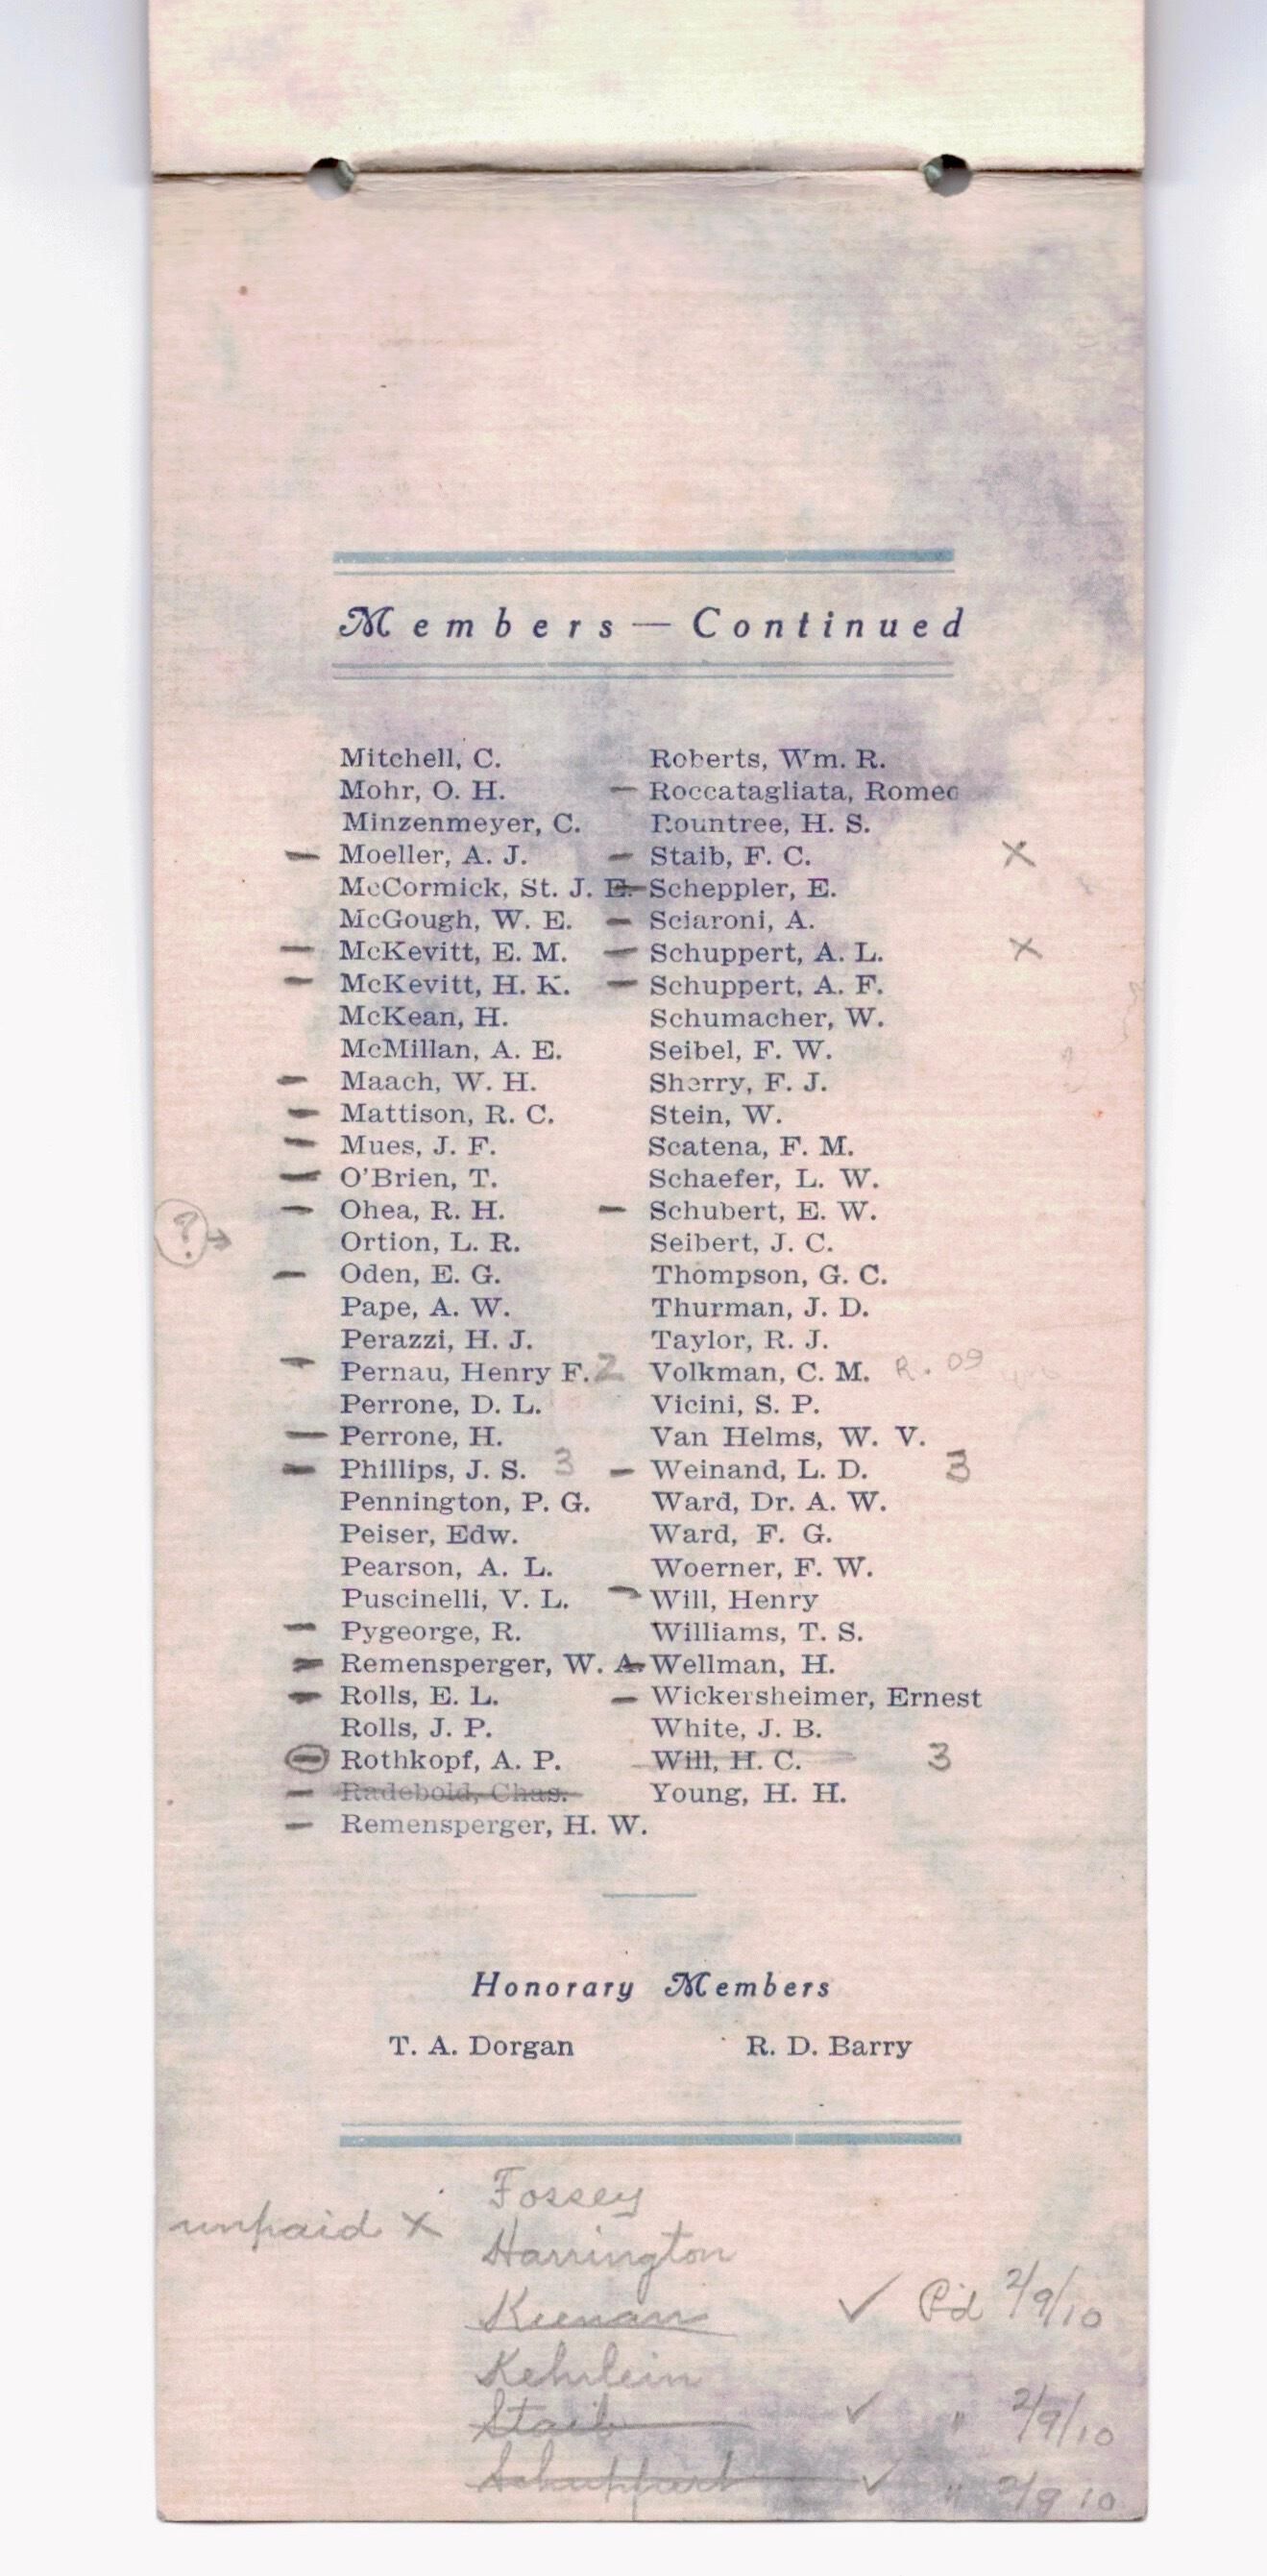 Members — Continued
Mitchell, C.
Mohr, O. H.
Minzenmeyer, C.
— Moeller, A. J.
McCormick, St. J. E.
McGough, W. E.
— McKevitt, E. M.
— McKevitt, H. K.
McKean, H.
McMillan, A. E.
— Maach, W. H.
— Mattison, R. C.
— Mues, J. F.
— O'Brien, T.
— Ohea, R. H.
? → Ortion, L. R.
— Oden, E. G.
Pape, A. W.
Perazzi, H. J.
— Pernau, Henry F. 2
Perrone, D. L.
— Perrone, H.
— Phillips, J. S. 3
Pennington, P. G.
Peiser, Edw.
Pearson, A. L.
Puscinelli, V. L.
— Pygeorge, R.
— Remensperger, W. A.
— Rolls, E. L.
Rolls, J. P.
— Rothkopf, A. P.
— Radebold, Chas.
— Remensperger, H. W.
Roberts, Wm. R.
— Roccatagliata, Romeo
Rountree, H. S.
— Staib, F. C. X
— Scheppler, E.
— Sciaroni, A.
— Schuppert, A. L. X
— Schuppert, A. F.
Schumacher, W.
Seibel, F. W.
Sherry, F. J.
Stein, W.
Scatena, F. M.
Schaefer, L. W.
— Schubert, E. W.
Seibert, J. C.
Thompson, G. C.
Thurman, J. D.
Taylor, R. J.
Volkman, C. M. R. 09
Vicini, S. P.
Van Helms, W. V.
— Weinand, L. D. 3
Ward, Dr. A. W.
Ward, F. G.
Woerner, F. W.
— Will, Henry
Williams, T. S.
Wellman, H.
— Wickersheimer, Ernest
White, J. B.
Will, H. C. 3
Young, H. H.
Honorary Members
T. A. Dorgan R. D. Barry
Fossey
unpaid X
Harrington
Keenan ✓ Pd 2/9/10
Kehrlein
Staib ✓ " 2/9/10
Schuppert ✓ " 2/9 10